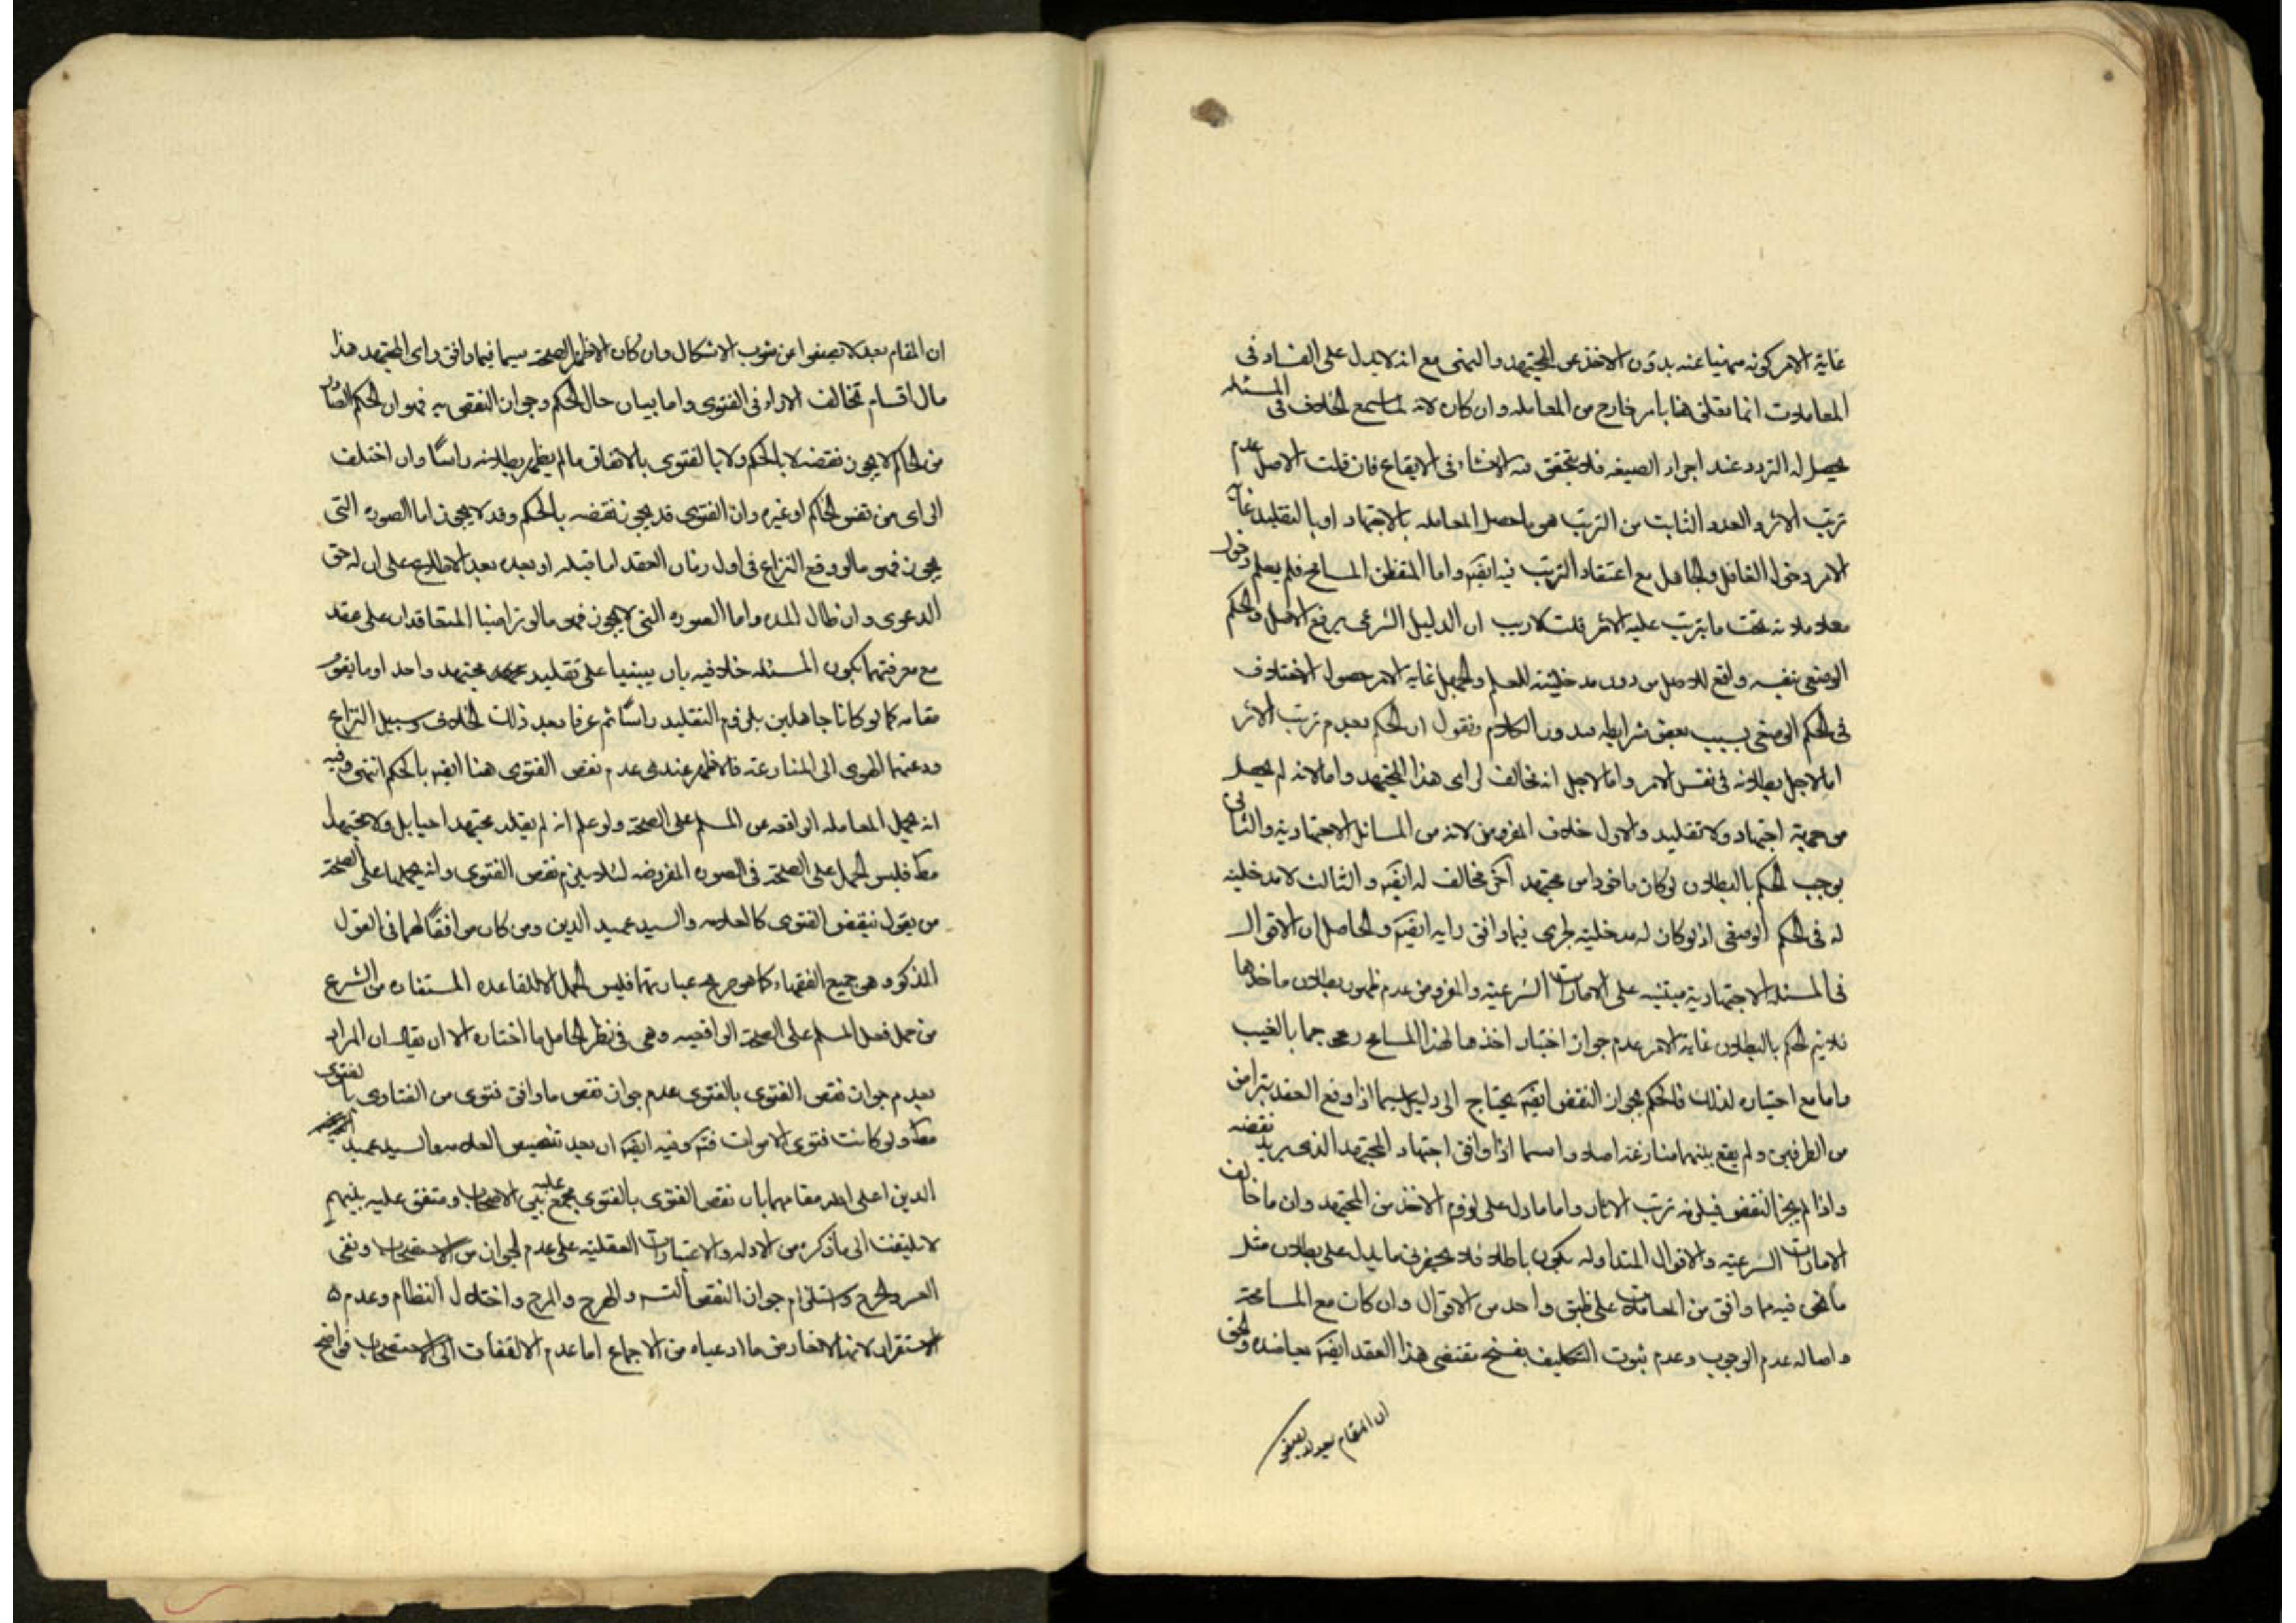 غاية الامر كونه منهيا عنه بدون الاخذ عن المجتهد والنهى مع انه لا يدل على الفساد فى
المعاملات انما تعلق هنا بامر خارج من المعامله وان كان لانه لما سمع الخلاف فى المسئله
يحصل له التردد عند اجراء الصيغه فلا يتحقق منه الانشاء فى الايقاع فان قلت الاصل عدم
ترتب الاثر والقدر الثابت من الترتب هو ما حصل المعامله بالاجتهاد او بالتقليد غاية
الامر دخول الغافل والجاهل مع اعتقاد الترتب فيه ايضه واما المتفطن المسامح فلم يعلم دخول
معاملاته تحت ما يترتب عليه الاثر قلت لا ريب ان الدليل الشرعى يرفع الاصل والحكم
الوضعى بنفسه رافع للاصل من دون مدخليته للعلم والجهل غاية الامر حصول الاختلاف
فى الحكم الوضعى بسبب بعض شرايطه فندور الكلام ونقول ان الحكم بعدم ترتب الاثر
اما لاجل بطلانه فى نفس الامر واما لاجل انه مخالف لراى هذا المجتهد واما لانه لم يحصل
من جهة اجتهاد ولا تقليد والاول خلاف المفروض لانه من المسائل الاجتهادية والثانى
يوجب الحكم بالبطلان لو كان ماخوذا من مجتهد آخر مخالف له ايضه والثالث لا مدخلية
له فى الحكم الوضعى اذ لو كان له مدخلية لجرى فيما وافق رايه ايضه والحاصل ان الاقوال
فى المسئله الاجتهادية مبتنيه على الامارات الشرعية والمفروض عدم ظهور بطلان ماخذها
فلا يتم الحكم بالبطلان غاية الامر عدم جواز اختيار اخذها لهذا المسامح رجما بالغيب
واما مع اختياره لذلك فالحكم بجواز النقض ايضه يحتاج الى دليل سيما اذا وقع العقد بتراض
من الطرفين ولم يقع بينهما منازعة اصلا ولا سيما اذا وافق اجتهاد المجتهد الذى يريد نقضه
واذا لم يجز النقض فيلزمه ترتب الاثار واما ما دل على لزوم الاخذ من المجتهد وان ما خالف
الامارات الشرعية والاقوال المتداوله يكون باطلا فلا يحضرنى ما يدل على بطلان مثل
ما نحن فيه مما وافق من المعاملات على طبق واحد من الاقوال وان كان مع المسامحة
واصاله عدم الوجوب وعدم ثبوت التكليف بفسخ مقتضى هذا العقد ايضه يعاضده والحق
ان المقام بعد لا يصفو
ان المقام بعد لا يصفوا عن شوب الاشكال وان كان الاظهر الصحة سيما فيما وافق راى المجتهد هذا
مال اقسام تخالف الاراء فى الفتوى واما بيان حال الحكم وجواز النقض به فهو ان الحكم الصادر
من الحاكم لا يجوز نقضه لا بالحكم ولا بالفتوى بالاتفاق ما لم يظهر بطلانه راسًا وان اختلف
الراى من نفس الحاكم او غيره وان الفتوى قد يجوز نقضه بالحكم وقد لا يجوز اما الصوره التى
يجوز فهو ما لو وقع النزاع فى اول زمان العقد اما قبله او بعده بعد الاطلاع على ان له حق
الدعوى وان طال المده واما الصوره التى لا يجوز فهو ما لو تراضيا المتعاقدان على عقد
مع معرفتهما بكون المسئله خلافيه بان يبنيا على تقليد مجتهد واحد او ما يقوم
مقامه كما لو كانا جاهلين بلزوم التقليد راسًا ثم عرفا بعد ذلك الخلاف وسبيل النزاع
ودعتهما الهوى الى المنازعة فالاظهر عندى عدم نقض الفتوى هنا ايضه بالحكم انتهى وفيه
انه يحمل المعامله الواقعه من المسلم على الصحة ولو علم انه لم يقلد مجتهدا حيا بل ولا مجتهدا
مطا فليس الحمل على الصحة فى الصوره المفروضه لئلا يلزم نقض الفتوى وانه يحملها على الصحة
من يقول بنقض الفتوى كالعلامه والسيد عميد الدين ومن كان موافقًا لهما فى القول
المذكور وهو جميع الفقهاء كما هو صريح عبارتهما فليس الحمل الا للقاعده المستفاده من الشرع
من حمل فعل المسلم على الصحة الواقعيه وهى فى نظر الحامل ما اختاره الا ان يقال ان المراد
بعدم جواز نقض الفتوى بالفتوى عدم جواز نقض ما وافق فتوى من الفتاوى بالفتوى
مطا ولو كانت فتوى الاموات فتم وفيه ايضه ان بعد تنصيص العلامه والسيد عميد
الدين اعلى الله مقامهما بان نقض الفتوى بالفتوى مجمع عليه بين الاصحاب ومتفق عليه بينهم
لا يلتفت الى ما ذكره من الادله والاعتبارات العقلية على عدم الجواز من الاستصحاب ونفى
العسر والحرج واستلزام جواز النقض العسر والهرج والمرج واختلال النظام وعدم
الاستقرار لانها لا تعارض ما ادعياه من الاجماع اما عدم الالتفات الى الاستصحاب فواضح